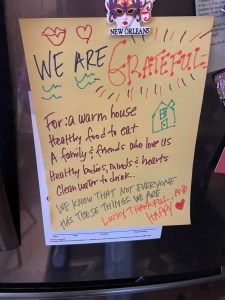 NEW ORLEANS
WE ARE GRATEFUL
For: a warm house
Healthy food to eat
A family & friends who love us
Healthy bodies, minds & hearts
Clean water to drink.
WE KNOW THAT NOT EVERYONE
HAS THESE THINGS WE ARE
LUCKY, THANKFUL, AND
HAPPY